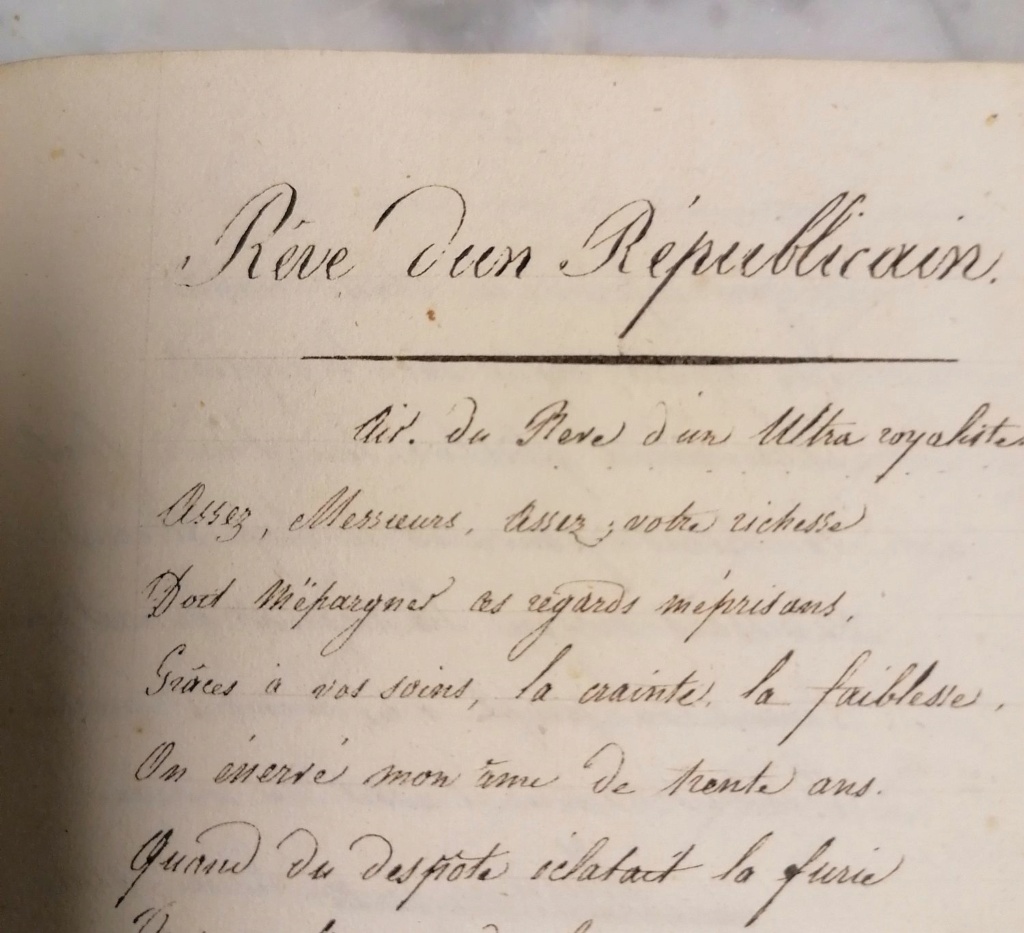 Rêve d'un Républicain.
Air. du Reve d'un Ultra royaliste
Assez, Messieurs, assez; votre richesse
Doit m'épargner ces regards méprisans,
Grâces à vos soins, la crainte, la faiblesse,
On énervé mon âme de trente ans.
Quand du despote éclatait la furie